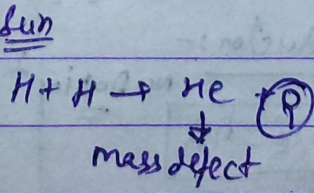 Sun
H + H → He
mass defect